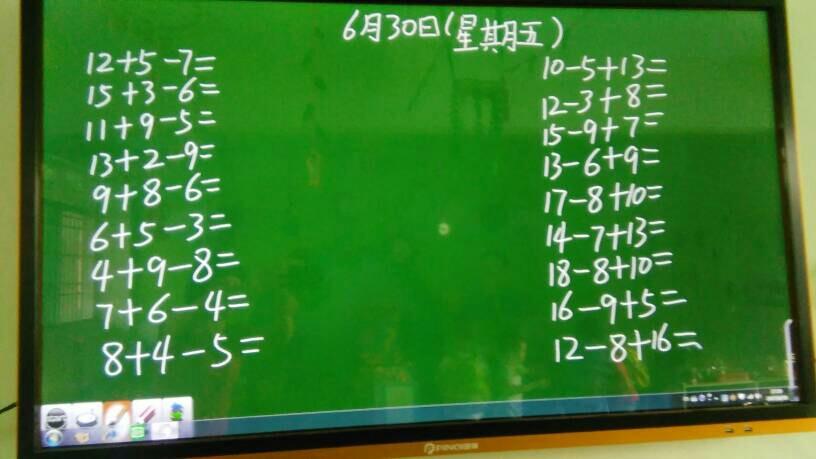 6月30日(星期五)
12+5-7=
15+3-6=
11+9-5=
13+2-9=
9+8-6=
6+5-3=
4+9-8=
7+6-4=
8+4-5=
10-5+13=
12-3+8=
15-9+7=
13-6+9=
17-8+10=
14-7+13=
18-8+10=
16-9+5=
12-8+16=